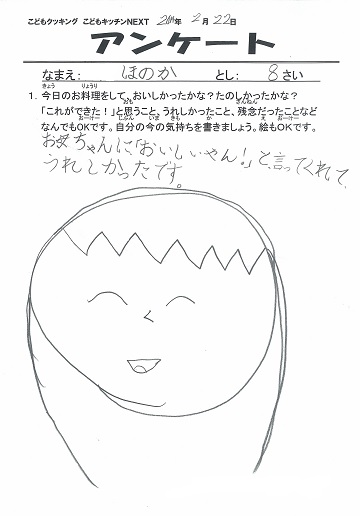 こどもクッキング こどもキッチンNEXT 2014年 2月 22日
アンケート
なまえ: ほのか とし: 8さい
きょう りょうり
1. 今日のお料理をして、おいしかったかな?たのしかったかな?
おも ざんねん
「これができた!」と思うこと、うれしかったこと、残念だったことなど
おーけー じぶん いま きも か え おーけー
なんでもOKです。自分の今の気持ちを書きましょう。絵もOKです。
お父ちゃんに「おいしいやん!」と、言ってくれて、
うれしかったです。